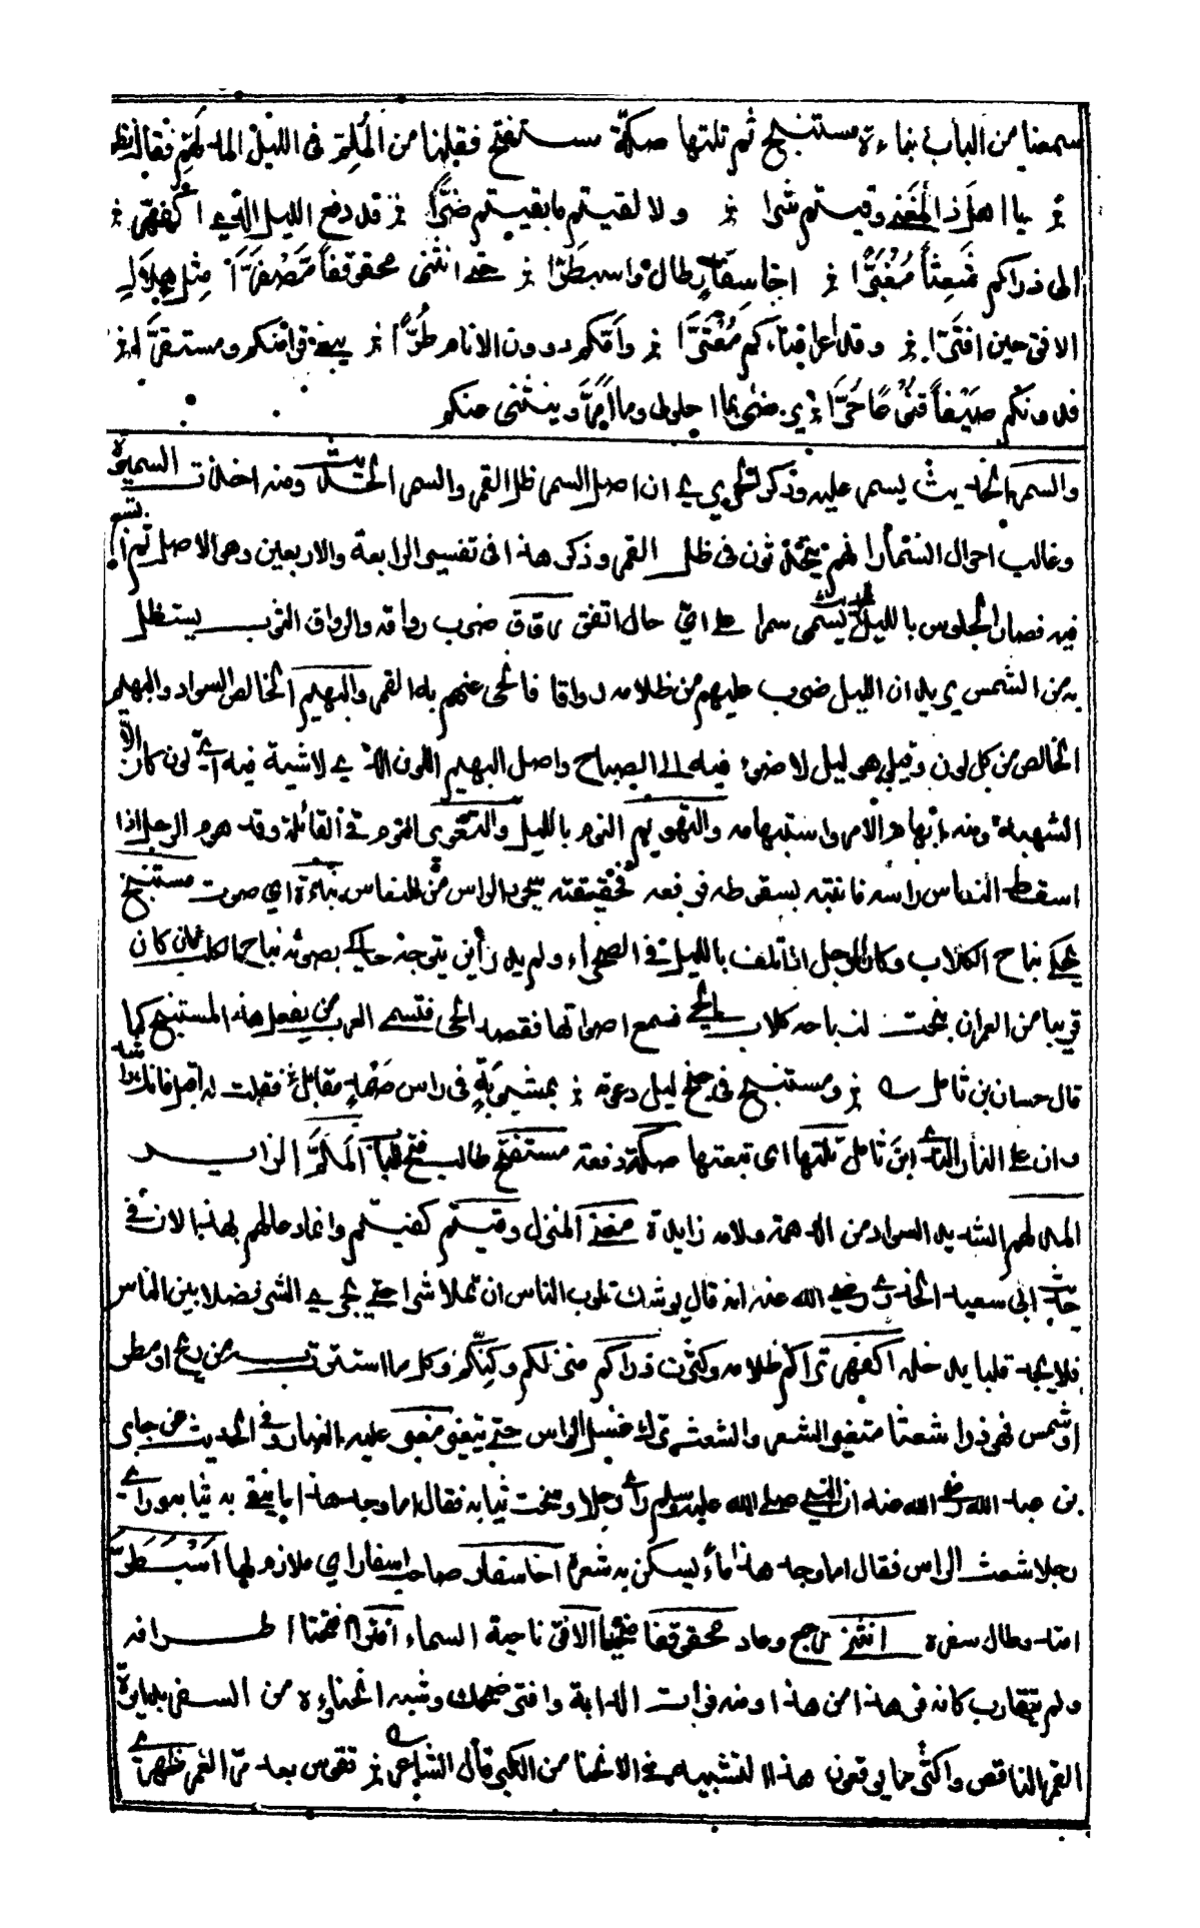 سمعنا من الباب نباءة مستنبح ثم تلتها صكة مستفتح فقلنا من الملم في الليل المدلهم فقال
يا اهل ذا المغنى وقيتم شرا ولا لقيتم ما بقيتم ضرا قد دفع الليل الذي اكفهرا
الى ذراكم شعثا مغبرا اخا سفار طال واسبطرا حتى انثنى محقوقفا مصفرا مثل هلال
الافق حين افترا وقد عرا فناءكم معترا وامكم دون الانام طرا يبغي قرى منكم ومستقرا
فدونكم ضيفا قنوعا حرا يرضى بما احلولى وما امرا وينثني عنكم
والسمر الحديث يسمر عليه وذكر ان اصل السمر ظل القمر والسمر الحديث ومنه اخذت السمرة
وغالب احوال السمار انهم يتحدثون في ظل القمر وذكر هذا في تفسير الرابعة والاربعين وهو الاصل ثم
فيه فصار الجلوس بالليل للحديث يسمى سمرا على اي حال اتفق روق ضرب رواقه والرواق الثوب يستظل
به من الشمس يريد ان الليل ضرب عليهم من ظلامه رواقا فانمحى عنهم به القمر والبهيم الخالص السواد والبهيم
الخالص من كل لون وقيل هو ليل لا ضوء فيه الى الصباح واصل البهيم اللون الذي لا شية فيه اي لون كان الا
الشهبة ومنه ابهام الامر واستبهامه والتهويم النوم بالليل والتغوير النوم في القائلة وقد هوم الرجل اذا
اسقط النعاس راسه فانتبه بسقوطه فرفعه فحقيقته تحريك الراس من النعاس نباءة اي صوت مستنبح
يحكي نباح الكلاب وكان الرجل اذا تلف بالليل في الصحراء ولم يدر اين يتوجه حاكى بصوته نباح الكلب فان كان
قريبا من العمران نبحت لنباحه كلاب الحي فسمع اصواتها فقصد الحي فتسمى العرب من يفعل هذا المستنبح كما
قال حسان بن ثامل ومستنبح في جنح ليل دعوته بمشبوبة في راس صمد مقابل فقلت له اقبل فانك
وان على النار الندى وابن ثامل تلتها اي تبعتها صكة دفعة مستفتح طالب فتح الباب الملم الزايد
المدلهم الشديد السواد من الدهمة ولامه زايدة مغنى المنزل وقيتم كفيتم وانما دعا لهم بهذا لان في
حديث ابي سعيد الخدري رضي الله عنه انه قال يوشك قلوب الناس ان تملا شرا حتى يجري الشر فضلا بين الناس
فلا يجد قلبا يدخله اكفهر تراكم ظلامه وكثرت ذراكم منزلكم وكنكم وكل ما استترت به من ريح او مطر
او شمس فهو ذرا شعثا متغير الشعر والشعث ترك غسل الراس حتى يتغير مغبرا عليه الغبار وفي الحديث عن جابر
بن عبد الله رضي الله عنه ان النبي صلى الله عليه وسلم راى رجلا وسخت ثيابه فقال اما وجد هذا ما ينقي به ثيابه وراى
رجلا شعث الراس فقال اما وجد هذا ماء يسكن به شعره اخا سفار صاحب اسفار اي ملازم لها اسبطر
امتد وطال سفره انثنى رجع وعاد محقوقفا منحنيا الافق ناحية السماء افترا فتحنا اطرافه
ولم يتقارب كانه في هذا من هذا ومنه فرات الدابة وافتر ضحك وشبه انحناءه من السفر بدارة
القمر الناقص واكثر ما يوقعون هذا التشبيه في الانحنا من الكبر قال الشاعر تقوس بعد مر العمر ظهري